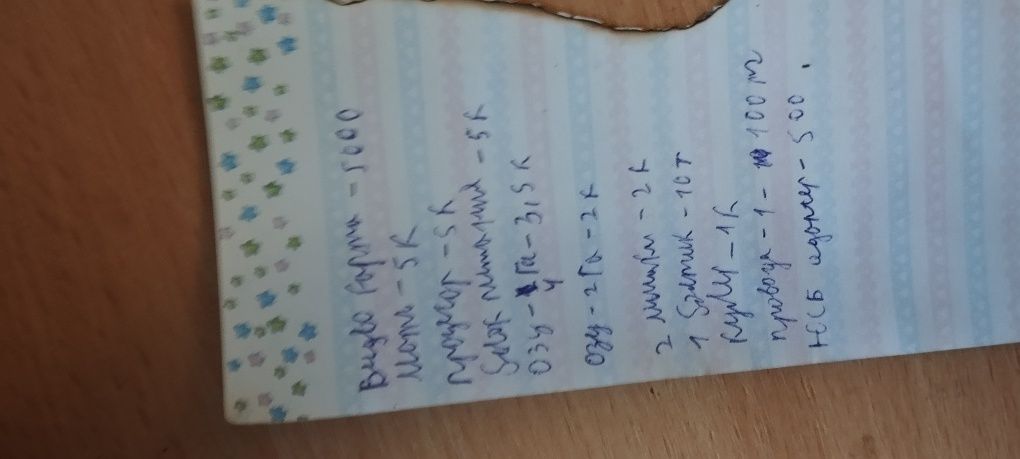 Видео карта - 5000
Мать - 5к
Процесор - 5к
Блок питания - 5к
Озу - 4Гб - 3,5к
озу - 2Гб - 2к
2 - 2к
1 - 10т
Кулер - 1к
провода - 1 - 100тг
ЮСБ адаптер - 500